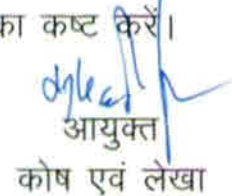 का कष्ट करें।
आयुक्त
कोष एवं लेखा